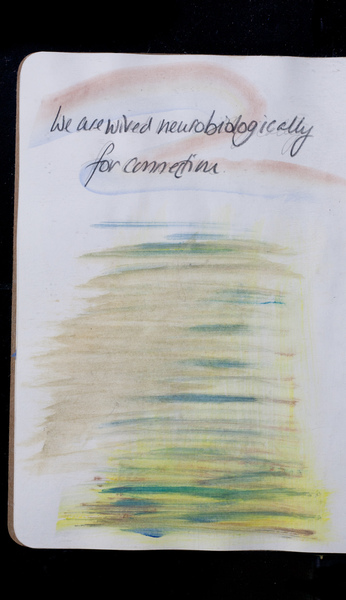 We are wired neurobiologically
for connection